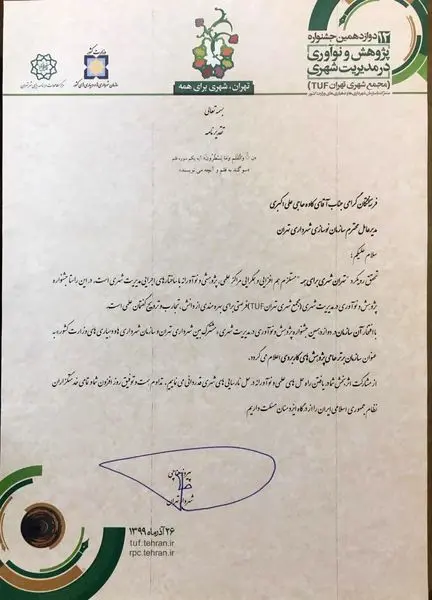 ۱۲ دوازدهمین جشنواره
پژوهش و نوآوری
در مدیریت شهری
(مجمع شهری تهران TUF)
وزارت کشور
تهران، شهری برای همه
بسمه تعالی
تقدیرنامه
«ن ۚ وَالْقَلَمِ وَمَا يَسْطُرُونَ» آیه یکم سوره قلم
«سوگند به قلم و آنچه می نویسند»
فرهیخته گرامی جناب آقای کاوه حاجی علی اکبری
مدیرعامل محترم سازمان نوسازی شهرداری تهران
سلام علیکم؛
تحقق رویکرد "تهران شهری برای همه" مستلزم هم افزایی و همگرایی مراکز علمی، پژوهشی و نوآورانه با ساختارهای اجرایی مدیریت شهری است. در این راستا جشنواره
پژوهش و نوآوری در مدیریت شهری (مجمع شهری تهران TUF) فرصتی برای بهره مندی از دانش، تجارب و ترویج گفتمان علمی است.
با افتخار آن سازمان در دوازدهمین جشنواره پژوهش و نوآوری در مدیریت شهری، مشترک بین شهرداری تهران و سازمان شهرداری ها و دهیاری های وزارت کشور به
عنوان سازمان برتر حامی پژوهش های کاربردی اعلام می گردد.
از مشارکت اثربخش شما در یافتن راه حل های علمی و نوآورانه در حل نارسایی های شهری قدردانی می نماییم. تداوم صحت و توفیق روز افزون شما و تمامی خدمتگزاران
نظام جمهوری اسلامی ایران را از درگاه ایزد منان مسئلت داریم
پیروز حناچی
شهردار تهران
۲۶ آذرماه ۱۳۹۹
tuf.tehran.ir
rpc.tehran.ir